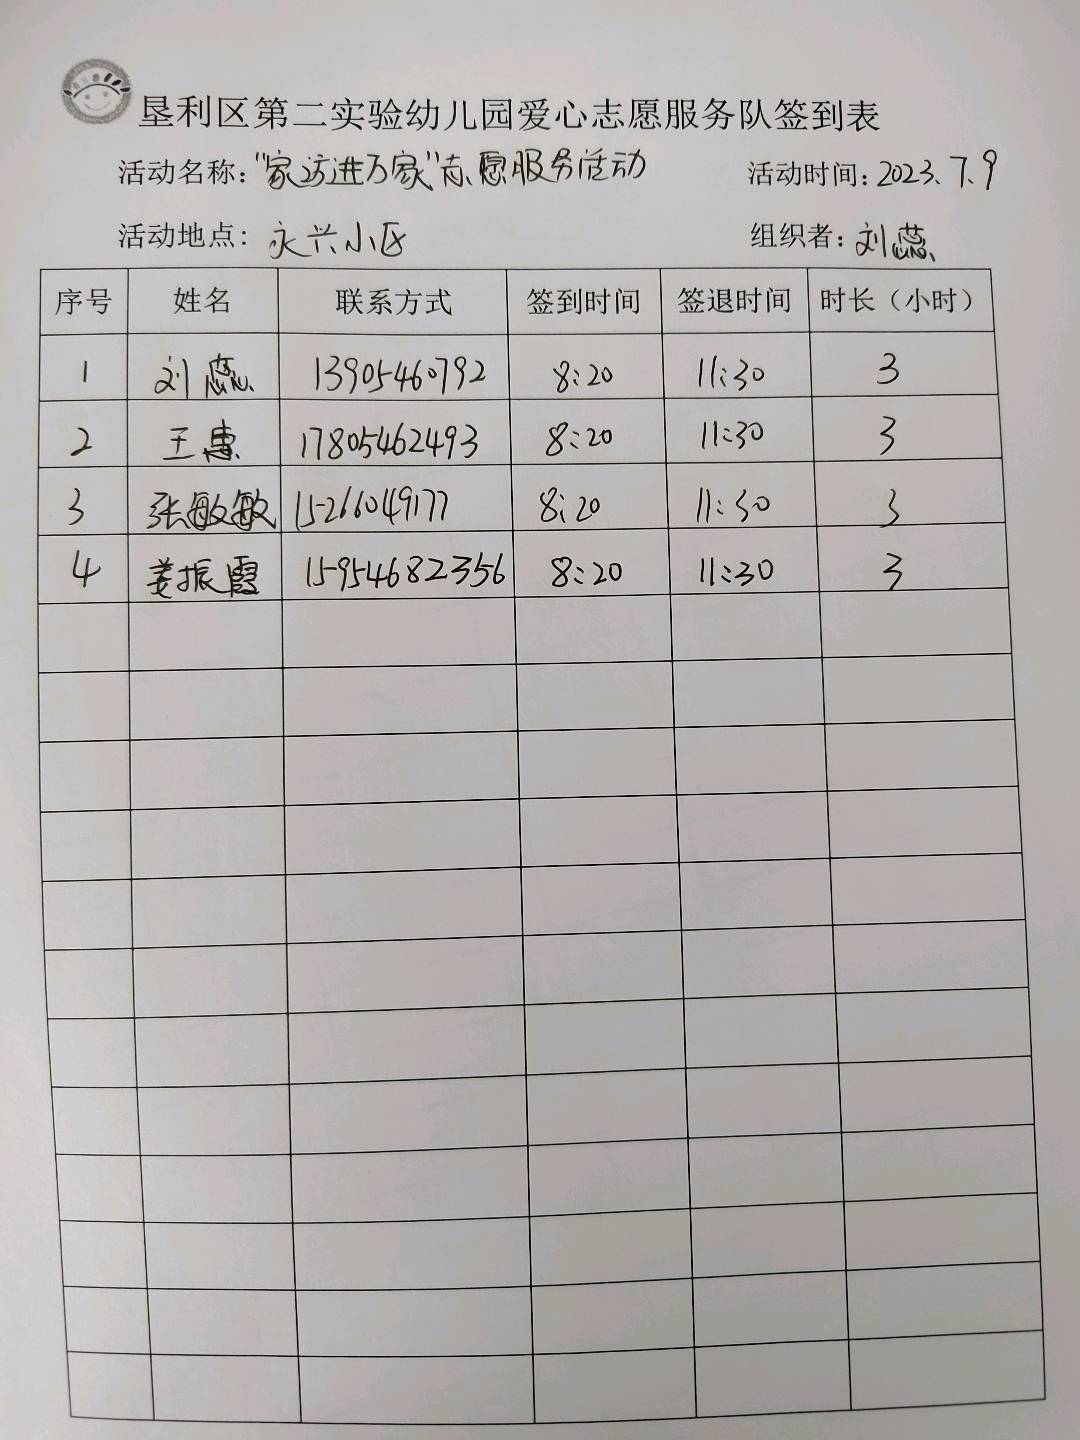 垦利区第二实验幼儿园爱心志愿服务队签到表
活动名称：“家访进万家”志愿服务活动 活动时间：2023.7.9
活动地点：永兴小区 组织者：刘蕊
序号 姓名 联系方式 签到时间 签退时间 时长（小时）
1 刘蕊 13905460792 8:20 11:30 3
2 王惠 17805462493 8:20 11:30 3
3 张敏敏 15266049177 8:20 11:30 3
4 姜振霞 15954682356 8:20 11:30 3